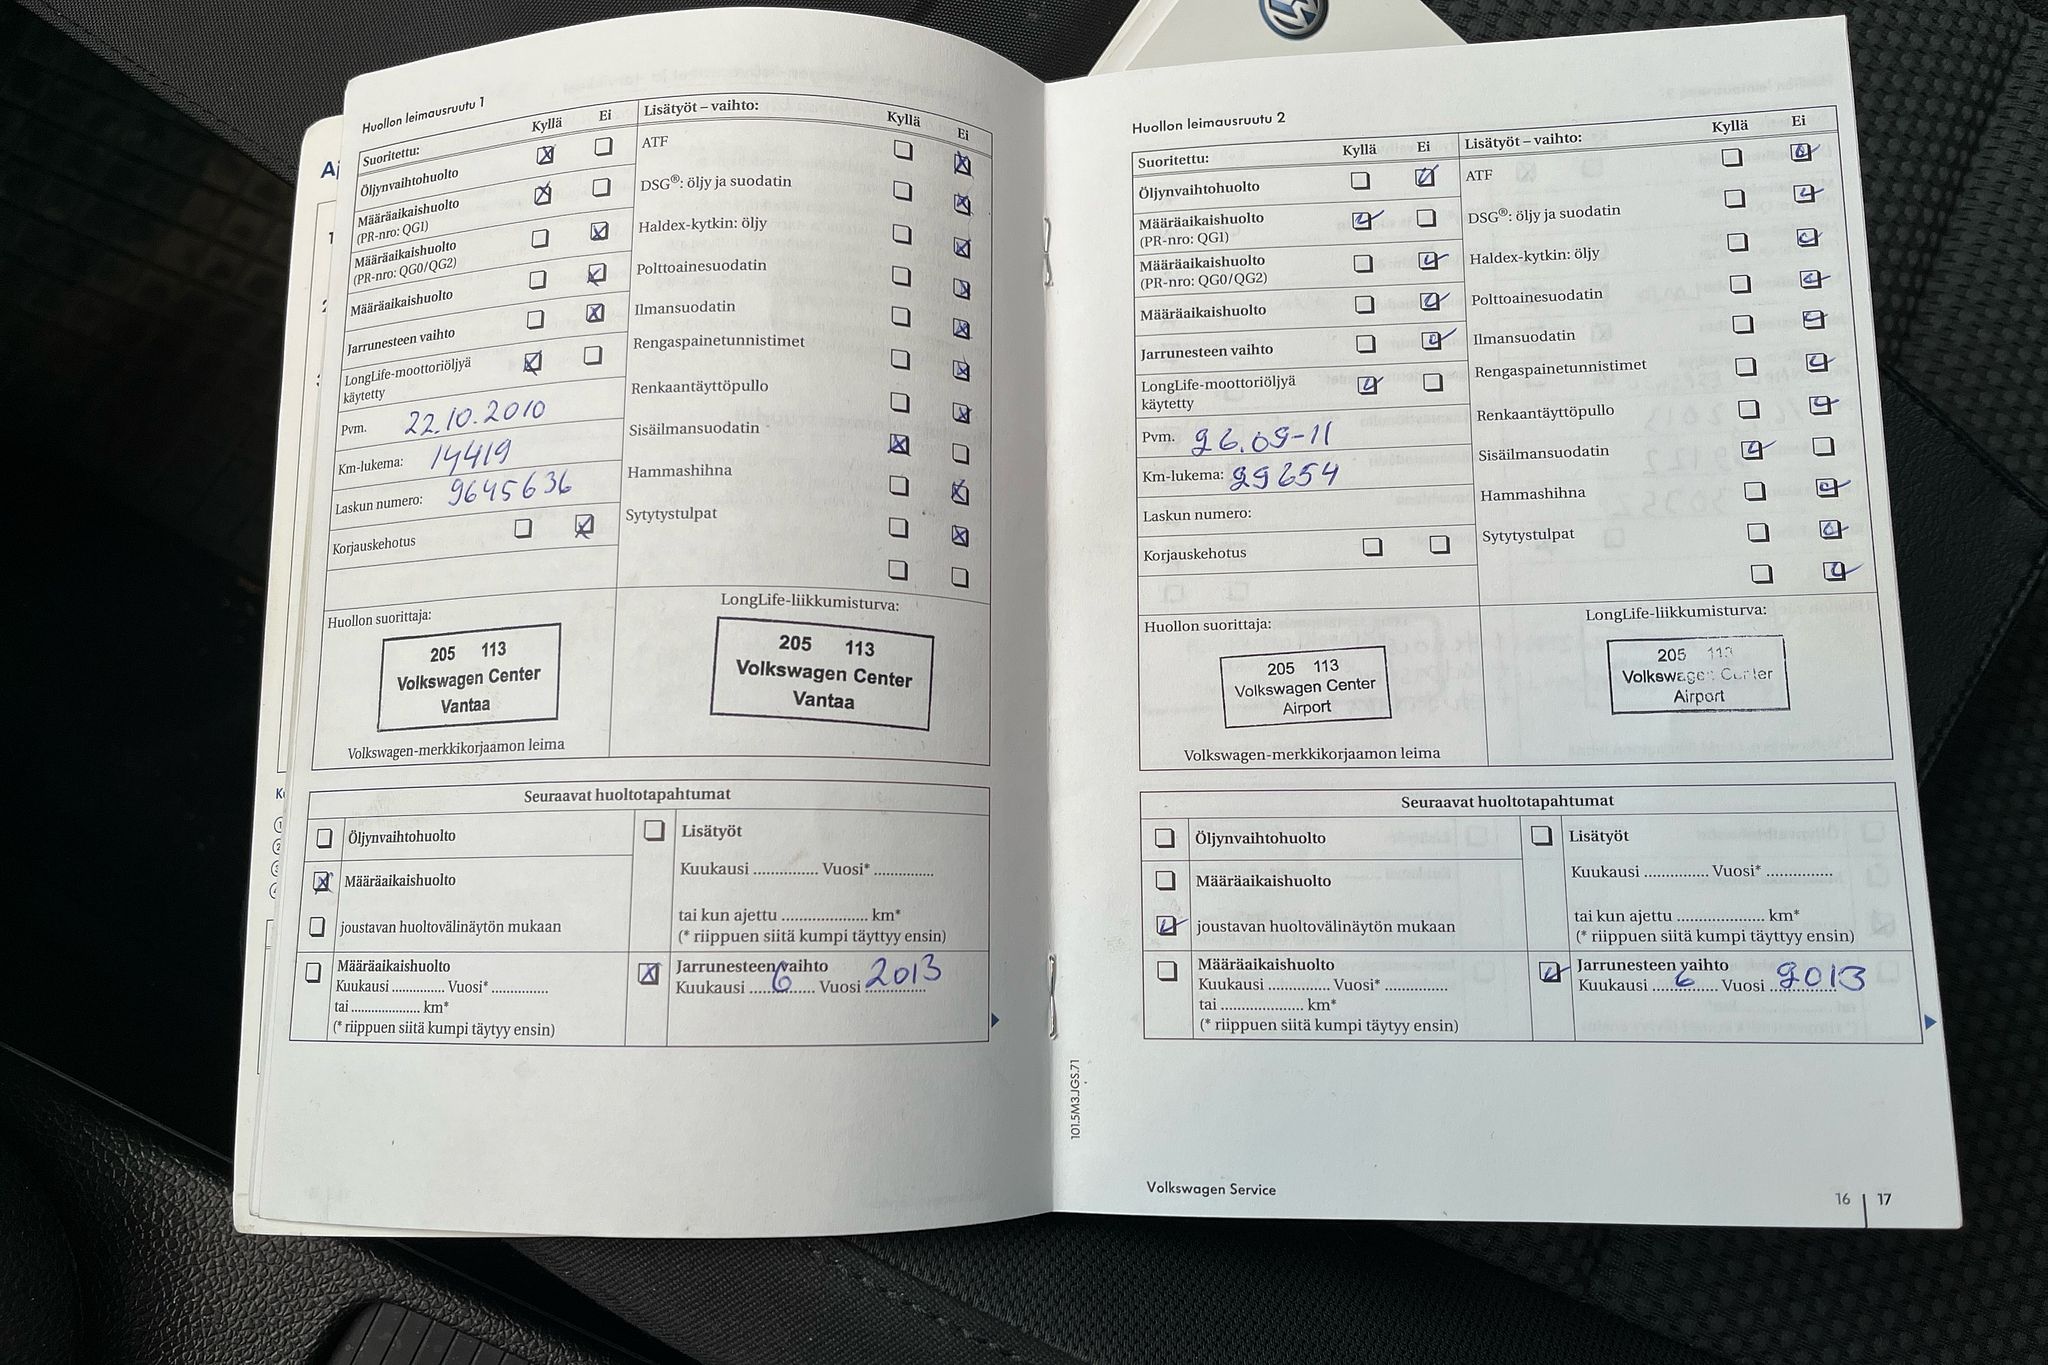 Huollon leimausruutu 1
Suoritettu: Kyllä Ei
Öljynvaihtohuolto
Määräaikaishuolto
(PR-nro: QG1)
Määräaikaishuolto
(PR-nro: QG0/QG2)
Määräaikaishuolto
Jarrunesteen vaihto
LongLife-moottoriöljyä
käytetty
Pvm. 22.10.2010
Km-lukema: 14419
Laskun numero: 9645636
Korjauskehotus
Lisätyöt – vaihto: Kyllä Ei
ATF
DSG®: öljy ja suodatin
Haldex-kytkin: öljy
Polttoainesuodatin
Ilmansuodatin
Rengaspainetunnistimet
Renkaantäyttöpullo
Sisäilmansuodatin
Hammashihna
Sytytystulpat
Huollon suorittaja:
205 113
Volkswagen Center
Vantaa
Volkswagen-merkkikorjaamon leima
LongLife-liikkumisturva:
205 113
Volkswagen Center
Vantaa
Seuraavat huoltotapahtumat
Öljynvaihtohuolto
Määräaikaishuolto
joustavan huoltovälinäytön mukaan
Määräaikaishuolto
Kuukausi ............. Vuosi* ..............
tai ..................... km*
(* riippuen siitä kumpi täytyy ensin)
Lisätyöt
Kuukausi ............... Vuosi* ..............
tai kun ajettu ..................... km*
(* riippuen siitä kumpi täyttyy ensin)
Jarrunesteen vaihto
Kuukausi 6 Vuosi 2013
Huollon leimausruutu 2
Suoritettu: Kyllä Ei
Öljynvaihtohuolto
Määräaikaishuolto
(PR-nro: QG1)
Määräaikaishuolto
(PR-nro: QG0/QG2)
Määräaikaishuolto
Jarrunesteen vaihto
LongLife-moottoriöljyä
käytetty
Pvm. 26.09-11
Km-lukema: 29654
Laskun numero:
Korjauskehotus
Lisätyöt – vaihto: Kyllä Ei
ATF
DSG®: öljy ja suodatin
Haldex-kytkin: öljy
Polttoainesuodatin
Ilmansuodatin
Rengaspainetunnistimet
Renkaantäyttöpullo
Sisäilmansuodatin
Hammashihna
Sytytystulpat
Huollon suorittaja:
205 113
Volkswagen Center
Airport
Volkswagen-merkkikorjaamon leima
LongLife-liikkumisturva:
205 113
Volkswagen Center
Airport
Seuraavat huoltotapahtumat
Öljynvaihtohuolto
Määräaikaishuolto
joustavan huoltovälinäytön mukaan
Määräaikaishuolto
Kuukausi ............. Vuosi* ...............
tai ..................... km*
(* riippuen siitä kumpi täytyy ensin)
Lisätyöt
Kuukausi ............... Vuosi* ...............
tai kun ajettu ..................... km*
(* riippuen siitä kumpi täyttyy ensin)
Jarrunesteen vaihto
Kuukausi 6 Vuosi 2013
101.5M3.JGS.71
Volkswagen Service
16 | 17